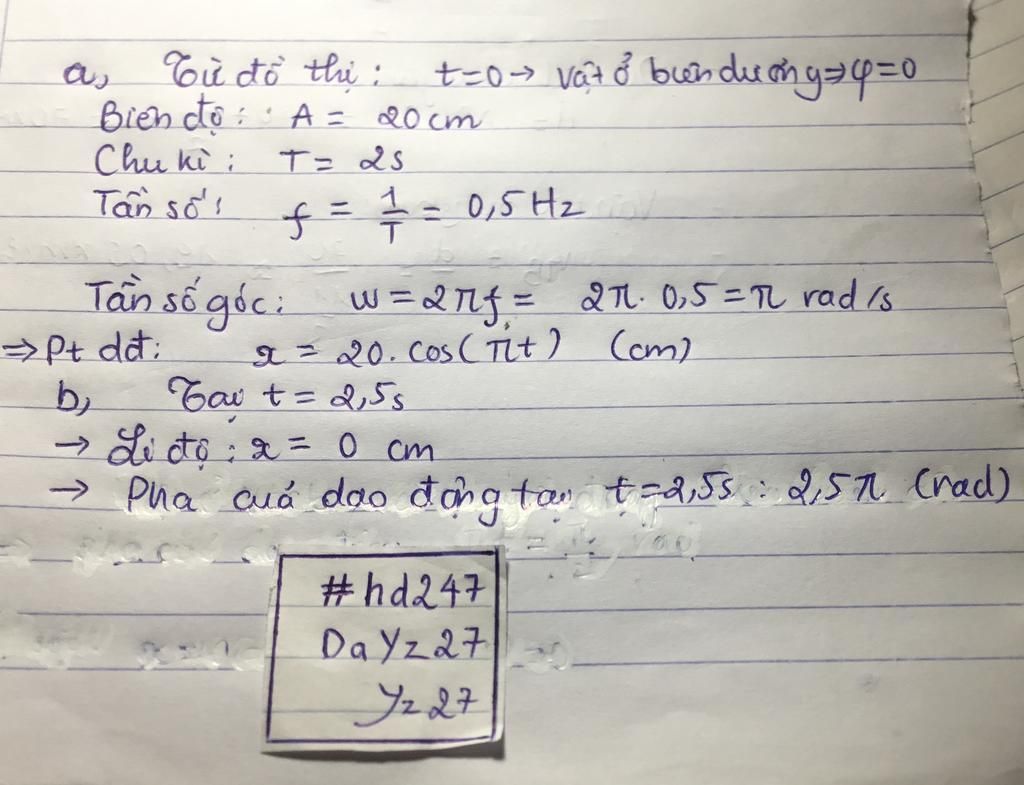 a, Từ đồ thị: t=0 → vật ở biên dương ⇒ φ=0
Biên độ: A = 20 cm
Chu kì: T = 2s
Tần số: f = 1/T = 0,5 Hz
Tần số góc: w = 2πf = 2π. 0,5 = π rad/s
⇒ Pt dđ: x = 20. cos(πt) (cm)
b, Tại t = 2,5s
→ Li độ: x = 0 cm
→ Pha cuả dao động tại t=2,5s : 2,5π (rad)
#hd247
DaYz27
Yz27